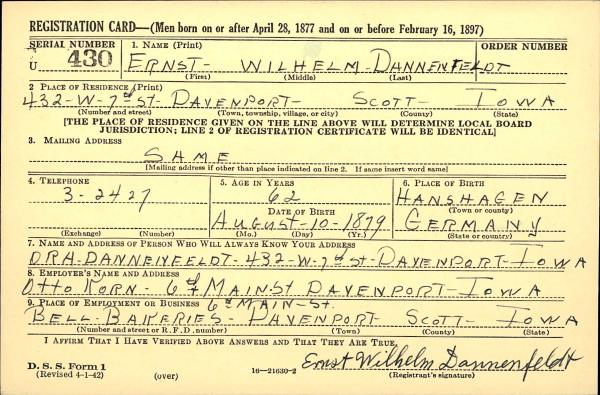 REGISTRATION CARD—(Men born on or after April 28, 1877 and on or before February 16, 1897)
SERIAL NUMBER 1. NAME (Print) ORDER NUMBER
U 430 ERNST- WILHELM- DANNENFELDT
(First) (Middle) (Last)
2 PLACE OF RESIDENCE (Print)
432-W-7th St- DAVENPORT- SCOTT- IOWA
(Number and street) (Town, township, village, or city) (County) (State)
[THE PLACE OF RESIDENCE GIVEN ON THE LINE ABOVE WILL DETERMINE LOCAL BOARD
JURISDICTION; LINE 2 OF REGISTRATION CERTIFICATE WILL BE IDENTICAL]
3. MAILING ADDRESS
SAME
[Mailing address if other than place indicated on line 2. If same insert word same]
4. TELEPHONE 5. AGE IN YEARS 6. PLACE OF BIRTH
3-2427 62 HANSHAGEN
DATE OF BIRTH (Town or county)
AUGUST-10-1879 GERMANY
(Exchange) (Number) (Mo.) (Day) (Yr.) (State or country)
7. NAME AND ADDRESS OF PERSON WHO WILL ALWAYS KNOW YOUR ADDRESS
DANNENFELDT-432-W-7th St-DAVENPORT-IOWA
8. EMPLOYER'S NAME AND ADDRESS
OTTO KORN- 6th MAIN St DAVENPORT-IOWA
9. PLACE OF EMPLOYMENT OR BUSINESS 6th MAIN-St.
BELL-BAKERIES- DAVENPORT SCOTT- IOWA
(Number and street or R. F. D. number) (Town) (County) (State)
I AFFIRM THAT I HAVE VERIFIED ABOVE ANSWERS AND THAT THEY ARE TRUE.
D. S. S. Form 1 Ernst Wilhelm Dannenfeldt
(Revised 4-1-42) (over) 16—21630-2 (Registrant's signature)